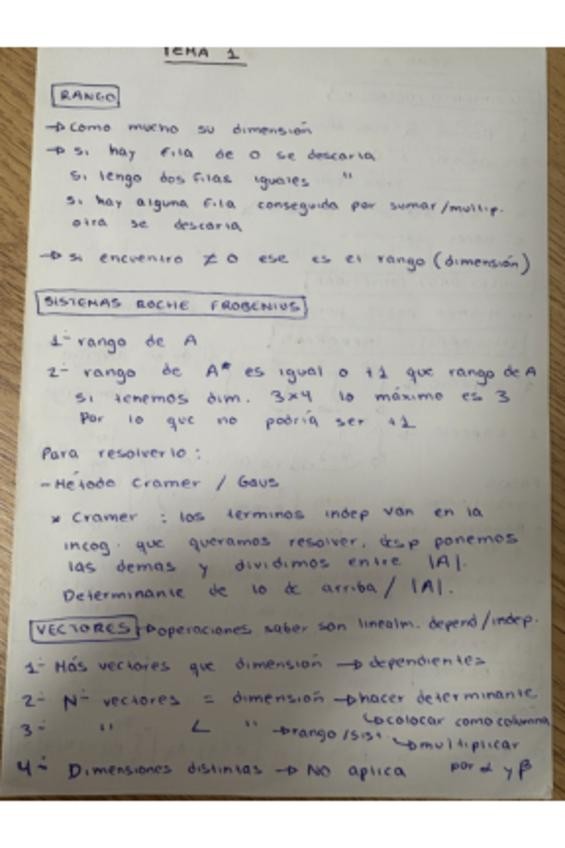 TEMA 1
RANGO
→ Como mucho su dimensión
→ Si hay fila de 0 se descarta
Si tengo dos filas iguales "
Si hay alguna fila conseguida por sumar/multip.
otra se descarta
→ Si encuentro ≠ 0 ese es el rango (dimensión)
SISTEMAS ROCHE FROBENIUS
1- rango de A
2- rango de A* es igual o +1 que rango de A
Si tenemos dim. 3x4 lo máximo es 3
Por lo que no podría ser +1
Para resolverlo:
- Método Cramer / Gaus
* Cramer : los terminos indep van en la
incog. que queramos resolver, desp ponemos
las demas y dividimos entre |A|.
Determinante de lo de arriba / |A|.
VECTORES → operaciones saber son linealm. depend/indep.
1- Más vectores que dimensión → dependientes
2- Nº vectores = dimensión → hacer determinante
↳ colocar como columna
3- " < " → rango/sist
↳ multiplicar
por α y β
4- Dimensiones distintas → NO aplica